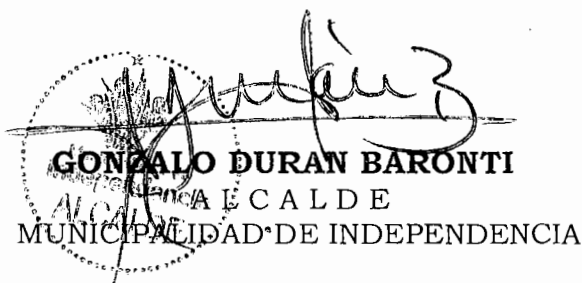 GONZALO DURAN BARONTI
ALCALDE
MUNICIPALIDAD DE INDEPENDENCIA